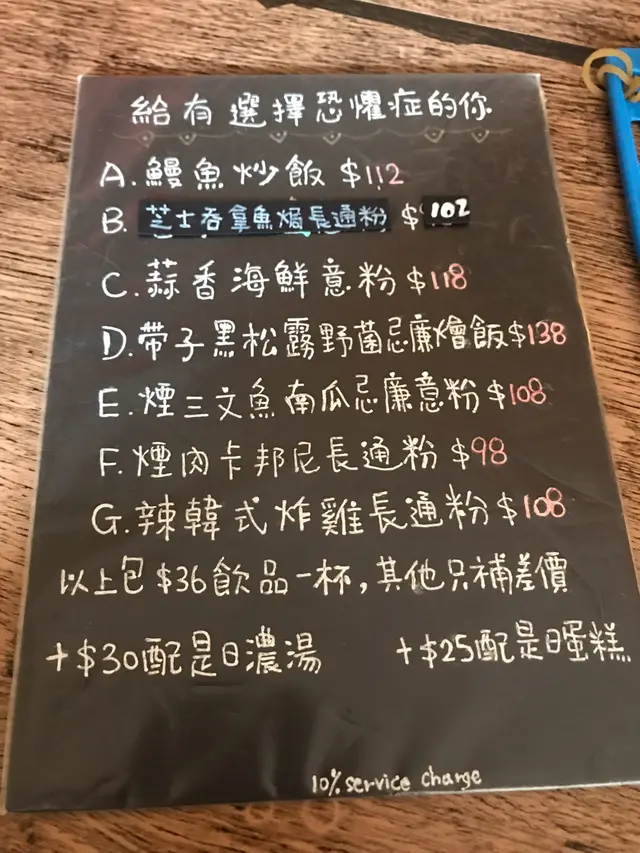 給有選擇恐懼症的你
A. 鰻魚炒飯 $112
B. 芝士吞拿魚焗長通粉 $102
C. 蒜香海鮮意粉 $118
D. 帶子黑松露野菌忌廉燴飯 $138
E. 煙三文魚南瓜忌廉意粉 $108
F. 煙肉卡邦尼長通粉 $98
G. 辣韓式炸雞長通粉 $108
以上包 $36 飲品一杯,其他只補差價
+$30配是日濃湯 +$25配是日蛋糕
10% service charge